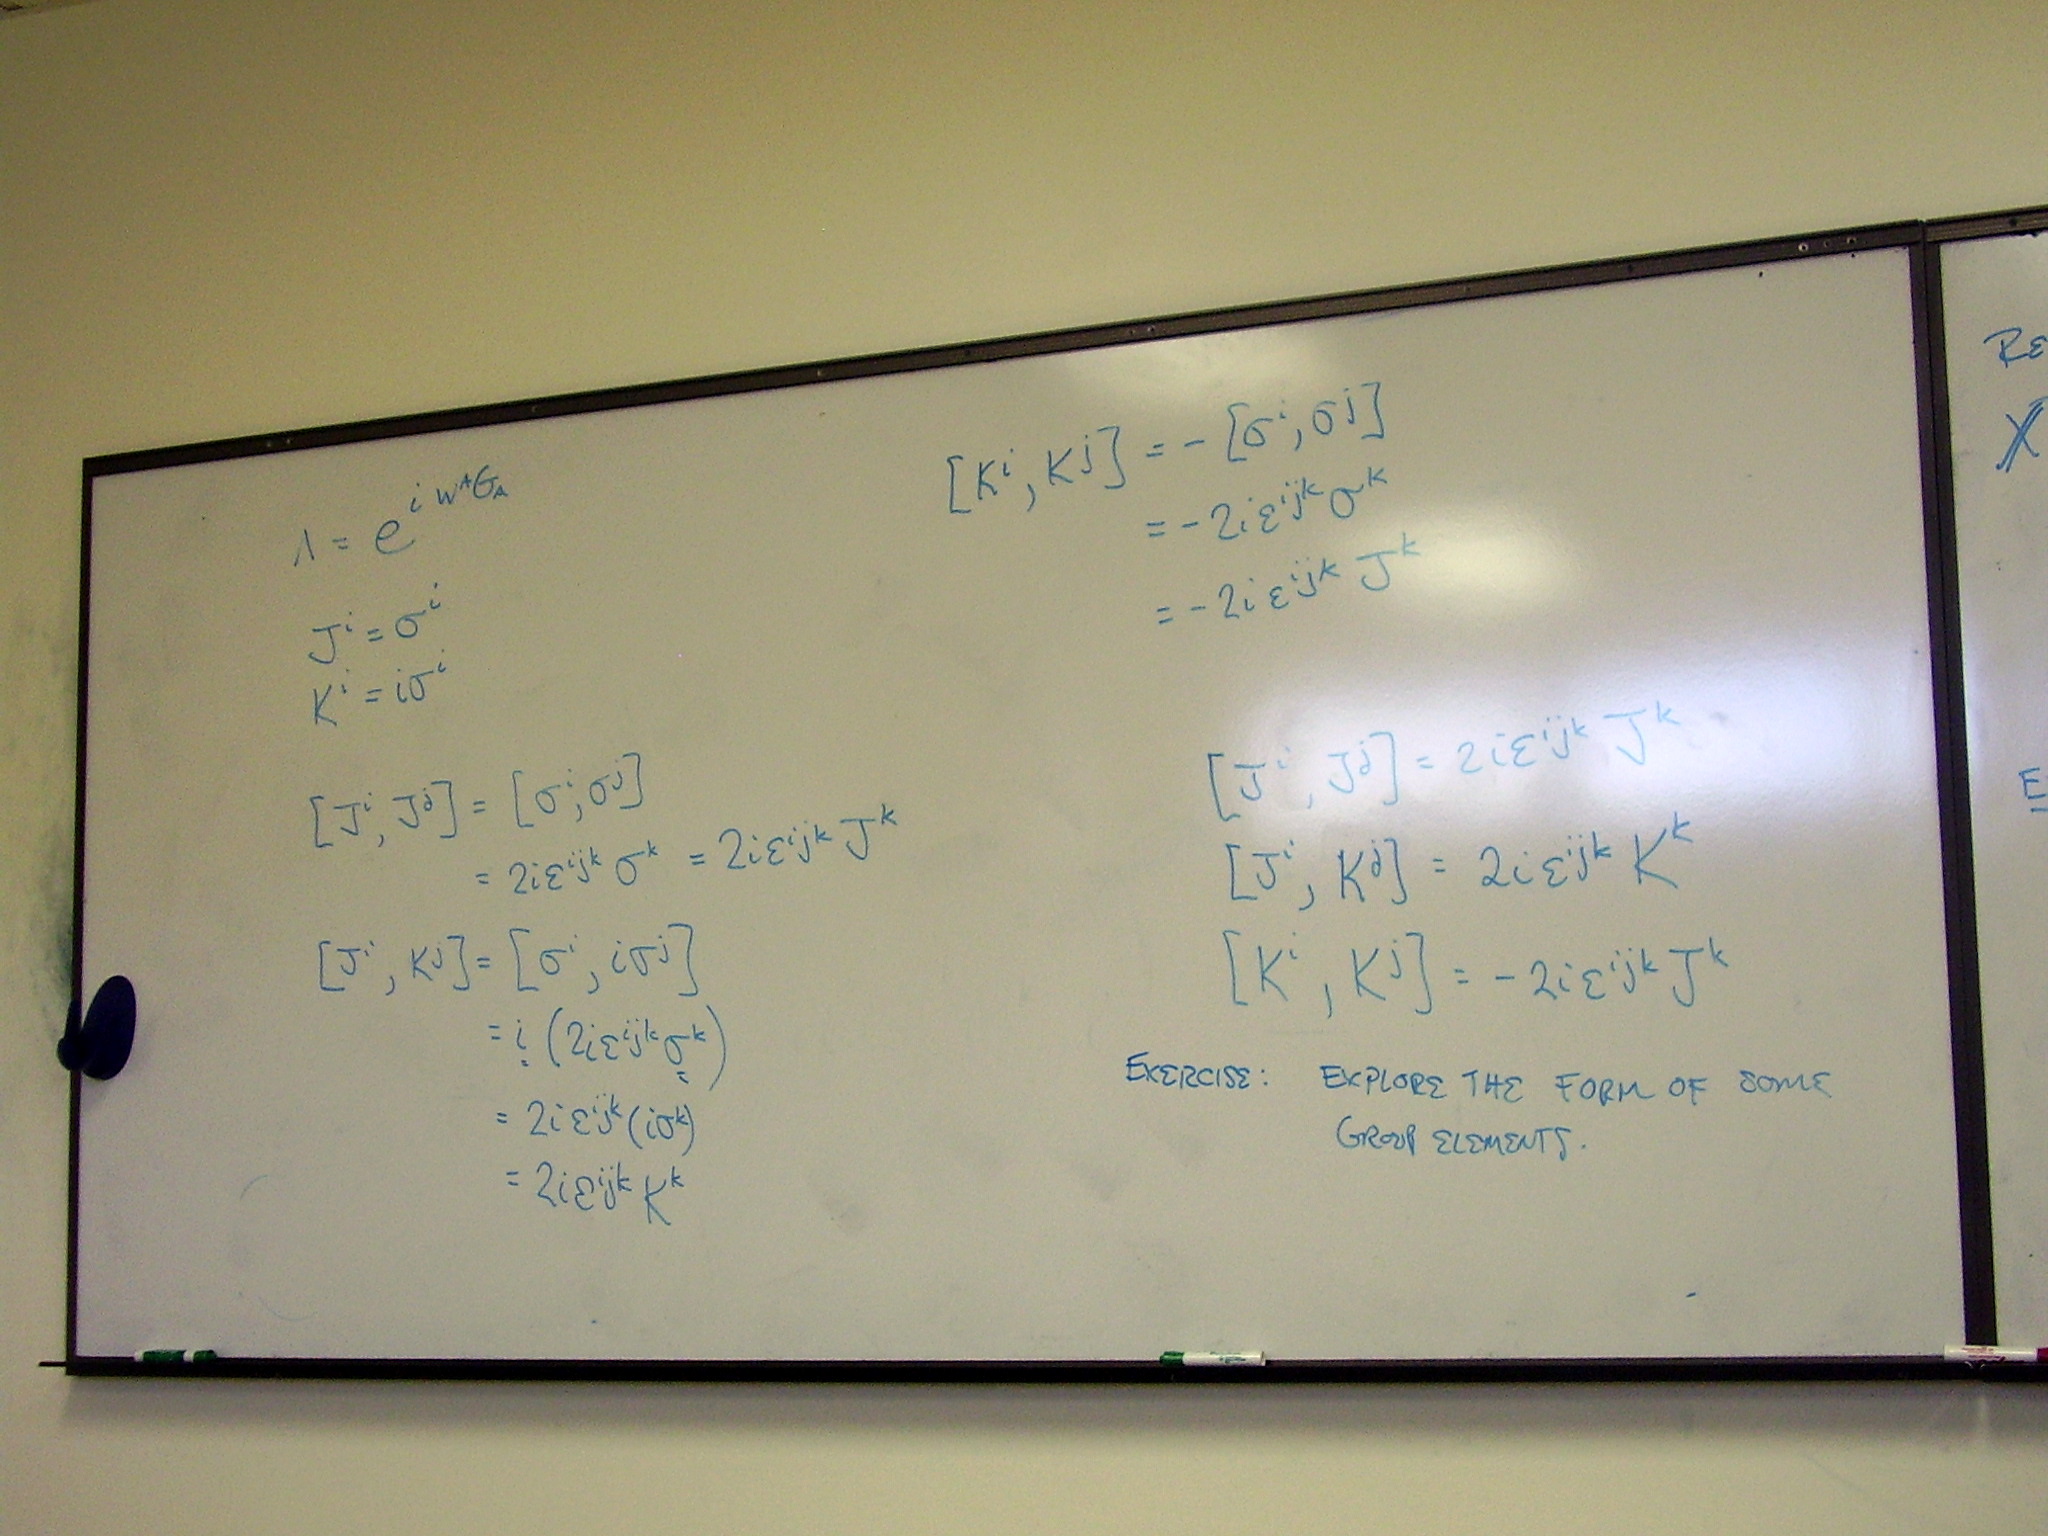 Λ = e^{i w^A G_A}
J^i = σ^i
K^i = iσ^i
[J^i, J^j] = [σ^i, σ^j]
= 2iε^{ijk} σ^k = 2iε^{ijk} J^k
[J^i, K^j] = [σ^i, iσ^j]
= i (2iε^{ijk} σ^k)
= 2iε^{ijk} (iσ^k)
= 2iε^{ijk} K^k
[K^i, K^j] = -[σ^i, σ^j]
= -2iε^{ijk} σ^k
= -2iε^{ijk} J^k
[J^i, J^j] = 2iε^{ijk} J^k
[J^i, K^j] = 2iε^{ijk} K^k
[K^i, K^j] = -2iε^{ijk} J^k
EXERCISE: EXPLORE THE FORM OF SOME
GROUP ELEMENTS.